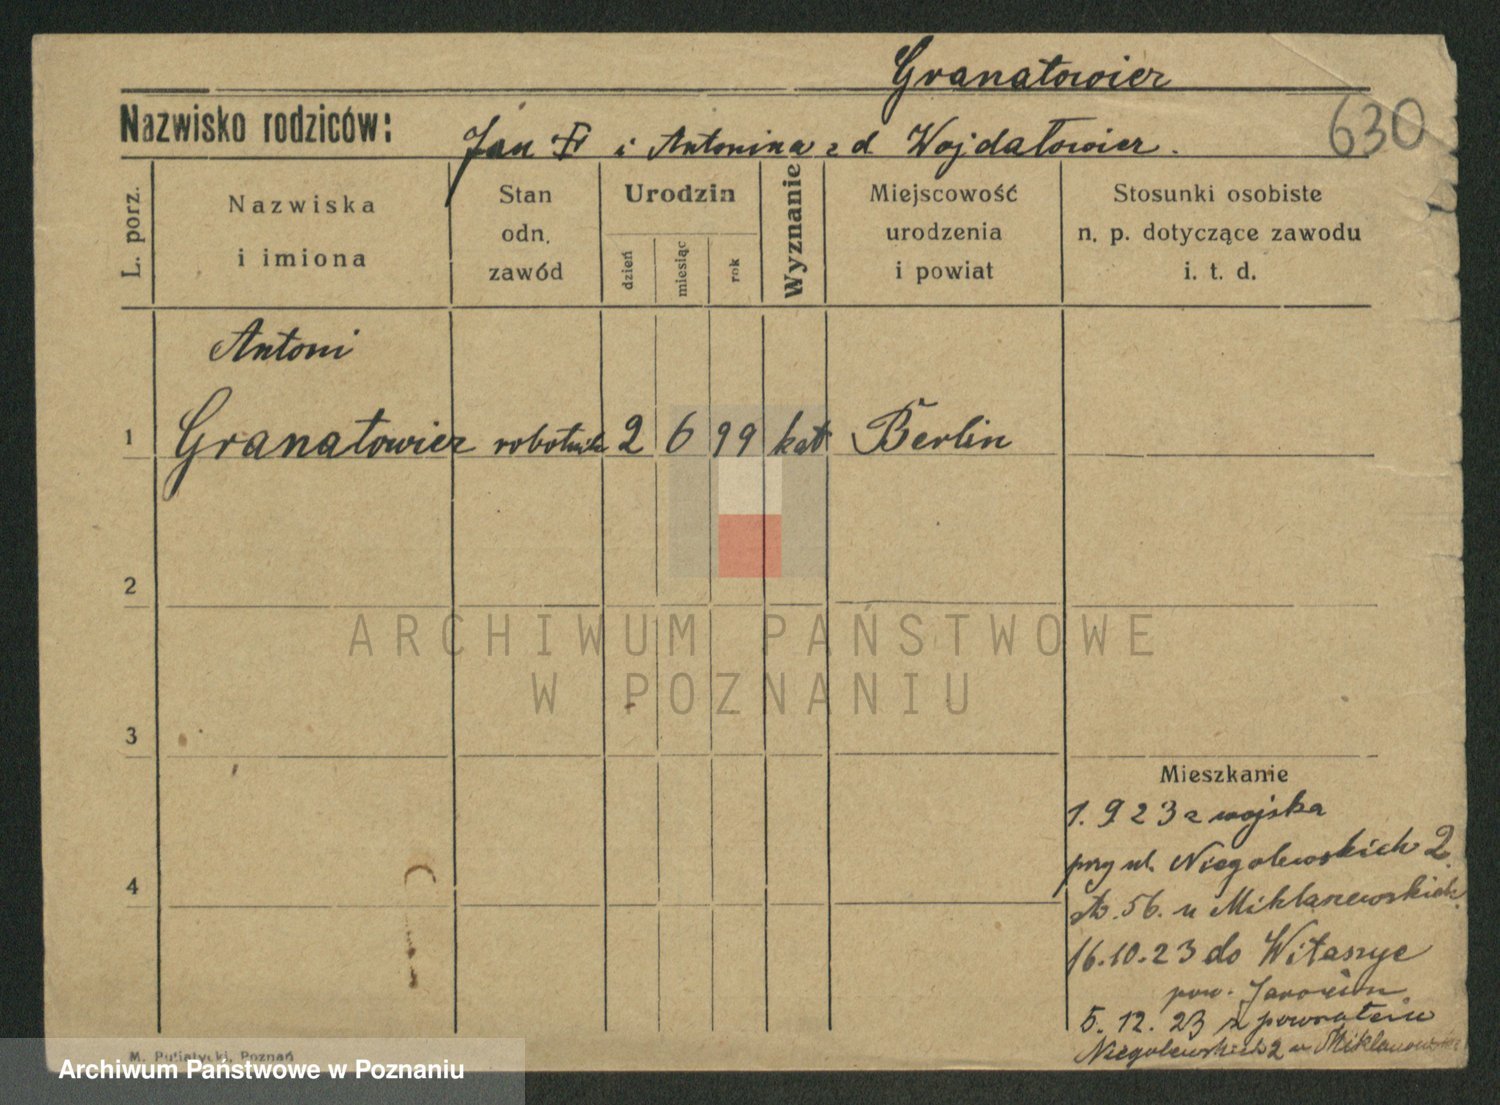 Granatowicz
Nazwisko rodziców: Jan i Antonina z d Wojdałowicz.
630
L. porz.
Nazwiska
i imiona
Stan
odn.
zawód
Urodzin
dzień
miesiąc
rok
Wyznanie
Miejscowość
urodzenia
i powiat
Stosunki osobiste
n. p. dotyczące zawodu
i. t. d.
Antoni
1 Granatowicz robotnik 2 6 99 kat Berlin
2
ARCHIWUM PAŃSTWOWE
W POZNANIU
3
Mieszkanie
1. 9 23 z wojska
przy ul. Niegolewskich 2
56. u Miklaszewskich.
4
16.10.23 do Witaszyc
pow. Jarocin
5. 12. 23 z powrotem
Niegolewskich 2 u
M. Putiatycki, Poznań
Archiwum Państwowe w Poznaniu